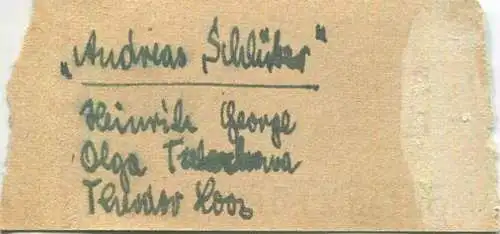 „Andreas Schlüter"
Heinrich George
Olga Tschechowa
Theodor Loos